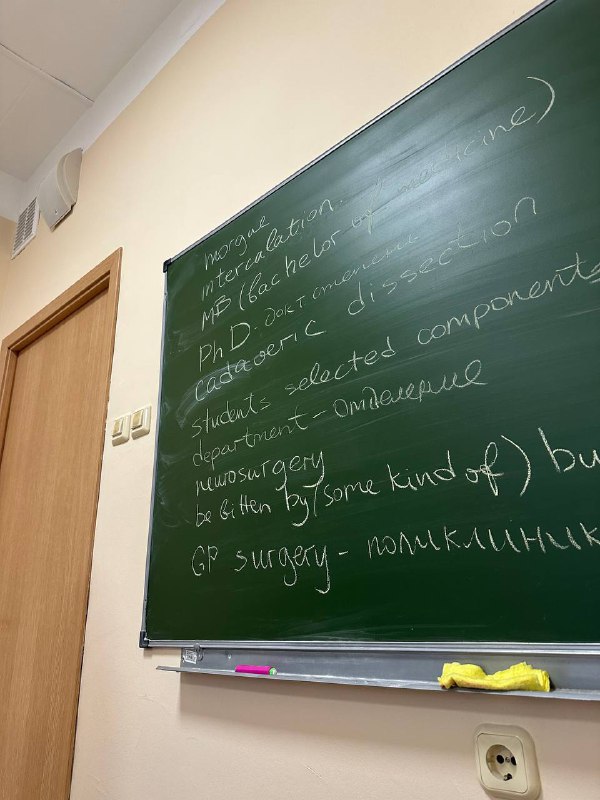 morgue
intercalation.
MB (bachelor of medicine)
PhD. докт степень
cadaveric dissection
students selected components
department - отделение
neurosurgery
be bitten by (some kind of) bu
GP surgery - поликлиник